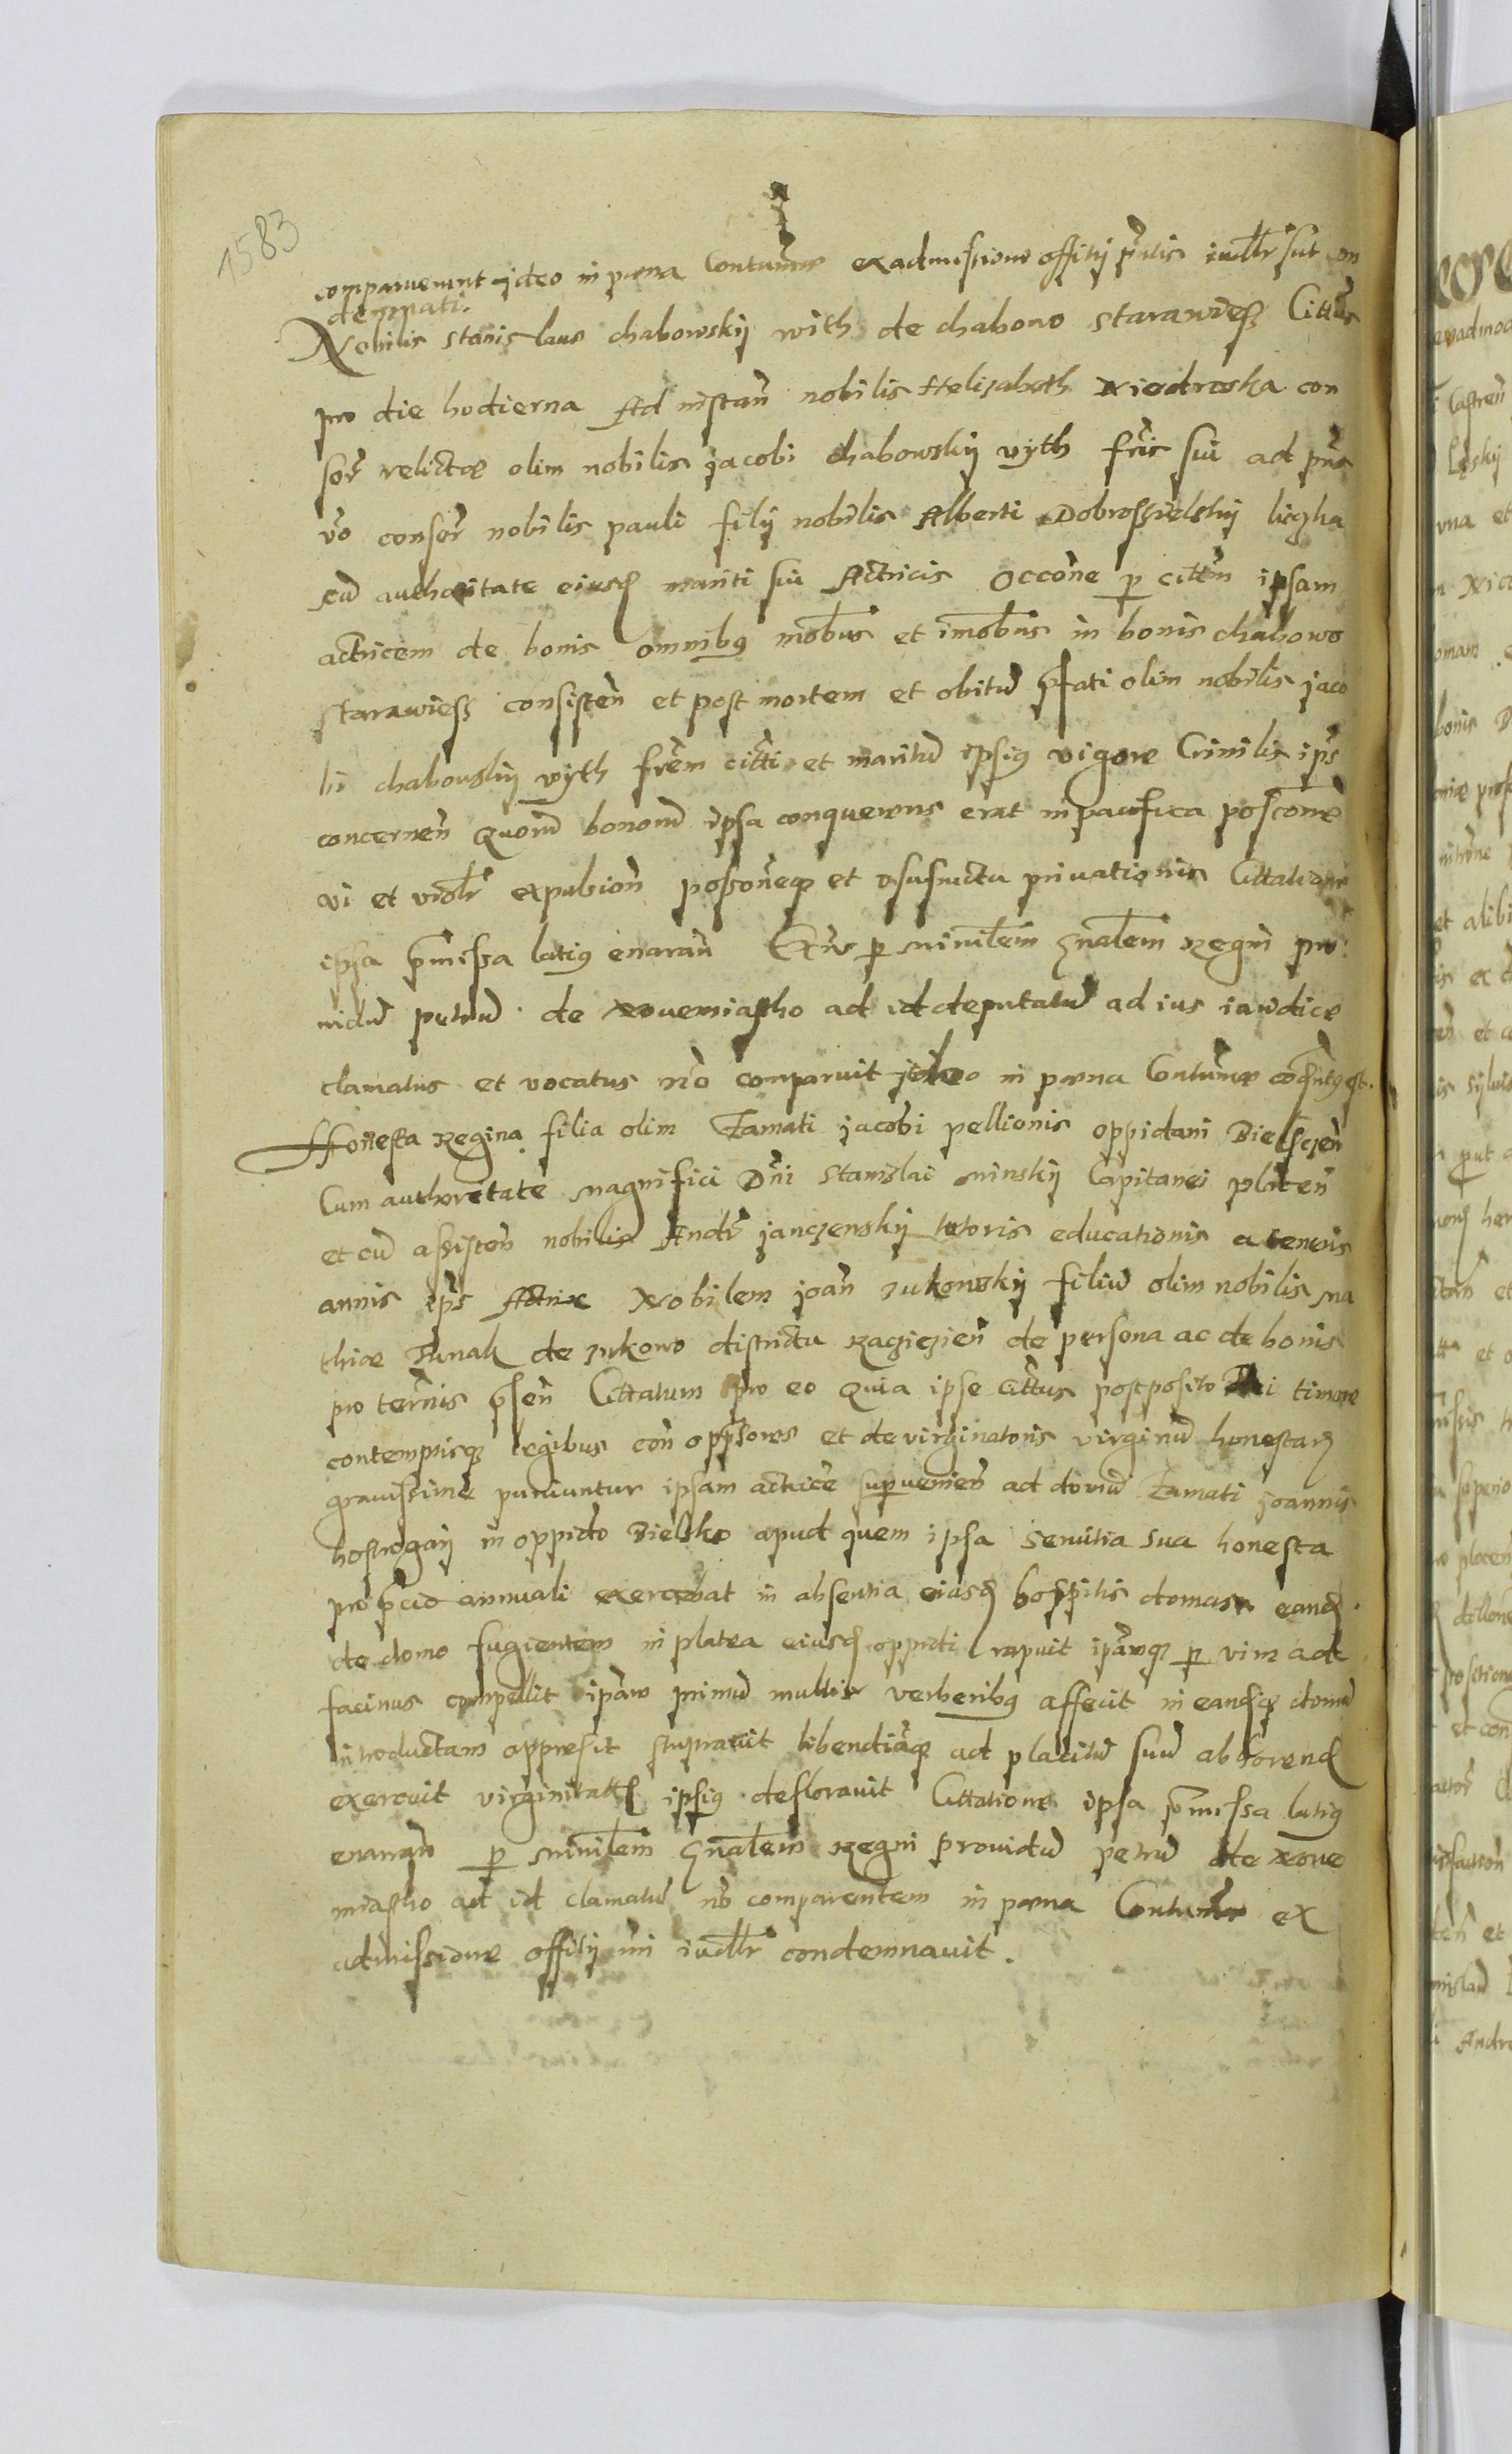 1583
comparuerunt ideo in pœna Contum̃ ex admissione offitij pñtis iudl̃r sũt con
demnati.
Nobilis stanislaus chabowskij with de chabowo starawiess Cittũs
pro die hodierna Ad instañ nobilis Helizabeth Niedroska con
sor̃ relictæ olim nobilis jacobi chabowskij vyth fr̃is sui ad pñs
ṽo consor̃ nobilis pauli filij nobilis Alberti Dobrosszielskij ligzha
cũ authoritate eiusd mariti sui Actricis Occõne p citt̃em ipsam
actricem de bonis omnibꝫ mob̃us et imob̃us in bonis chabowo
starawiess consisteñ et post mortem et obitũ p̃fati olim nobilis jaco
bi chabouskij vyth fr̃em citti et maritũ ipsiꝰ vigore Ciuilis ip̃s
concerneñ Quorũ bonorũ ipsa conquerens erat in pacifica possõne
vi et viol̃r expulsioñ possõneqꝫ et vsufructu priuationis Cittatione
ipsa p̃missa latiꝰ enarañ Exñs p ministl̃em gñalem Regni pro
uidũ petrũ de Nouemiastho ad id deputatũ ad ius iaudice
clamatus et vocatus nõ comparuit ideo in pœna Contum̃
Honesta Regina filia olim Famati jacobi pellionis oppidani Bielsczeñ
Cum authoretate magnifici Dñi stanislai minskij Capitanei ploceñ
et cũ assisteñ nobilis Andr̃ janczenskij tutoris educationis a teneris
annis ip̃s Actrix Nobilem joañ zukowskij filiũ olim nobilis ma
thiæ Funak de zukowo districtu Raziązieñ de persona ac de bonis
pro ter̃nis p̃señ Cittatum pro eo Quia ipse Cittũs postposito Dei timore
contemptisqꝫ legibus coñ opp̃ssores et de virginatoris virginũ honestarꝫ
grauissime puniuntur ipsam actricẽ superuenieñ ad domũ Famati joannis
hostrogaij in oppido Bielsko apud quem ipsa seruitia sua honesta
pro p̃cio annuali exercebat in absentia eiusd hospitis domus eand
de domo fugientem in platea eiusd oppidi rapuit ip̃amqꝫ p vim ad
facinus compellit ip̃am primũ multis verberibꝫ affecit in eandqꝫ domũ
introductam oppressit stuprauit libendiãqꝫ ad placitũ suũ abhorend
exercuit virginitatẽ ipsiꝰ deflorauit Cittatione ipsa p̃missa latiꝰ
enarañ p ministl̃em gñalem Regni prouidũ petrũ de Noue
miastho ad id clamatũ nõ comparentem in pœna Contum̃ ex
admissione offitij ñri iudl̃r condemnauit.